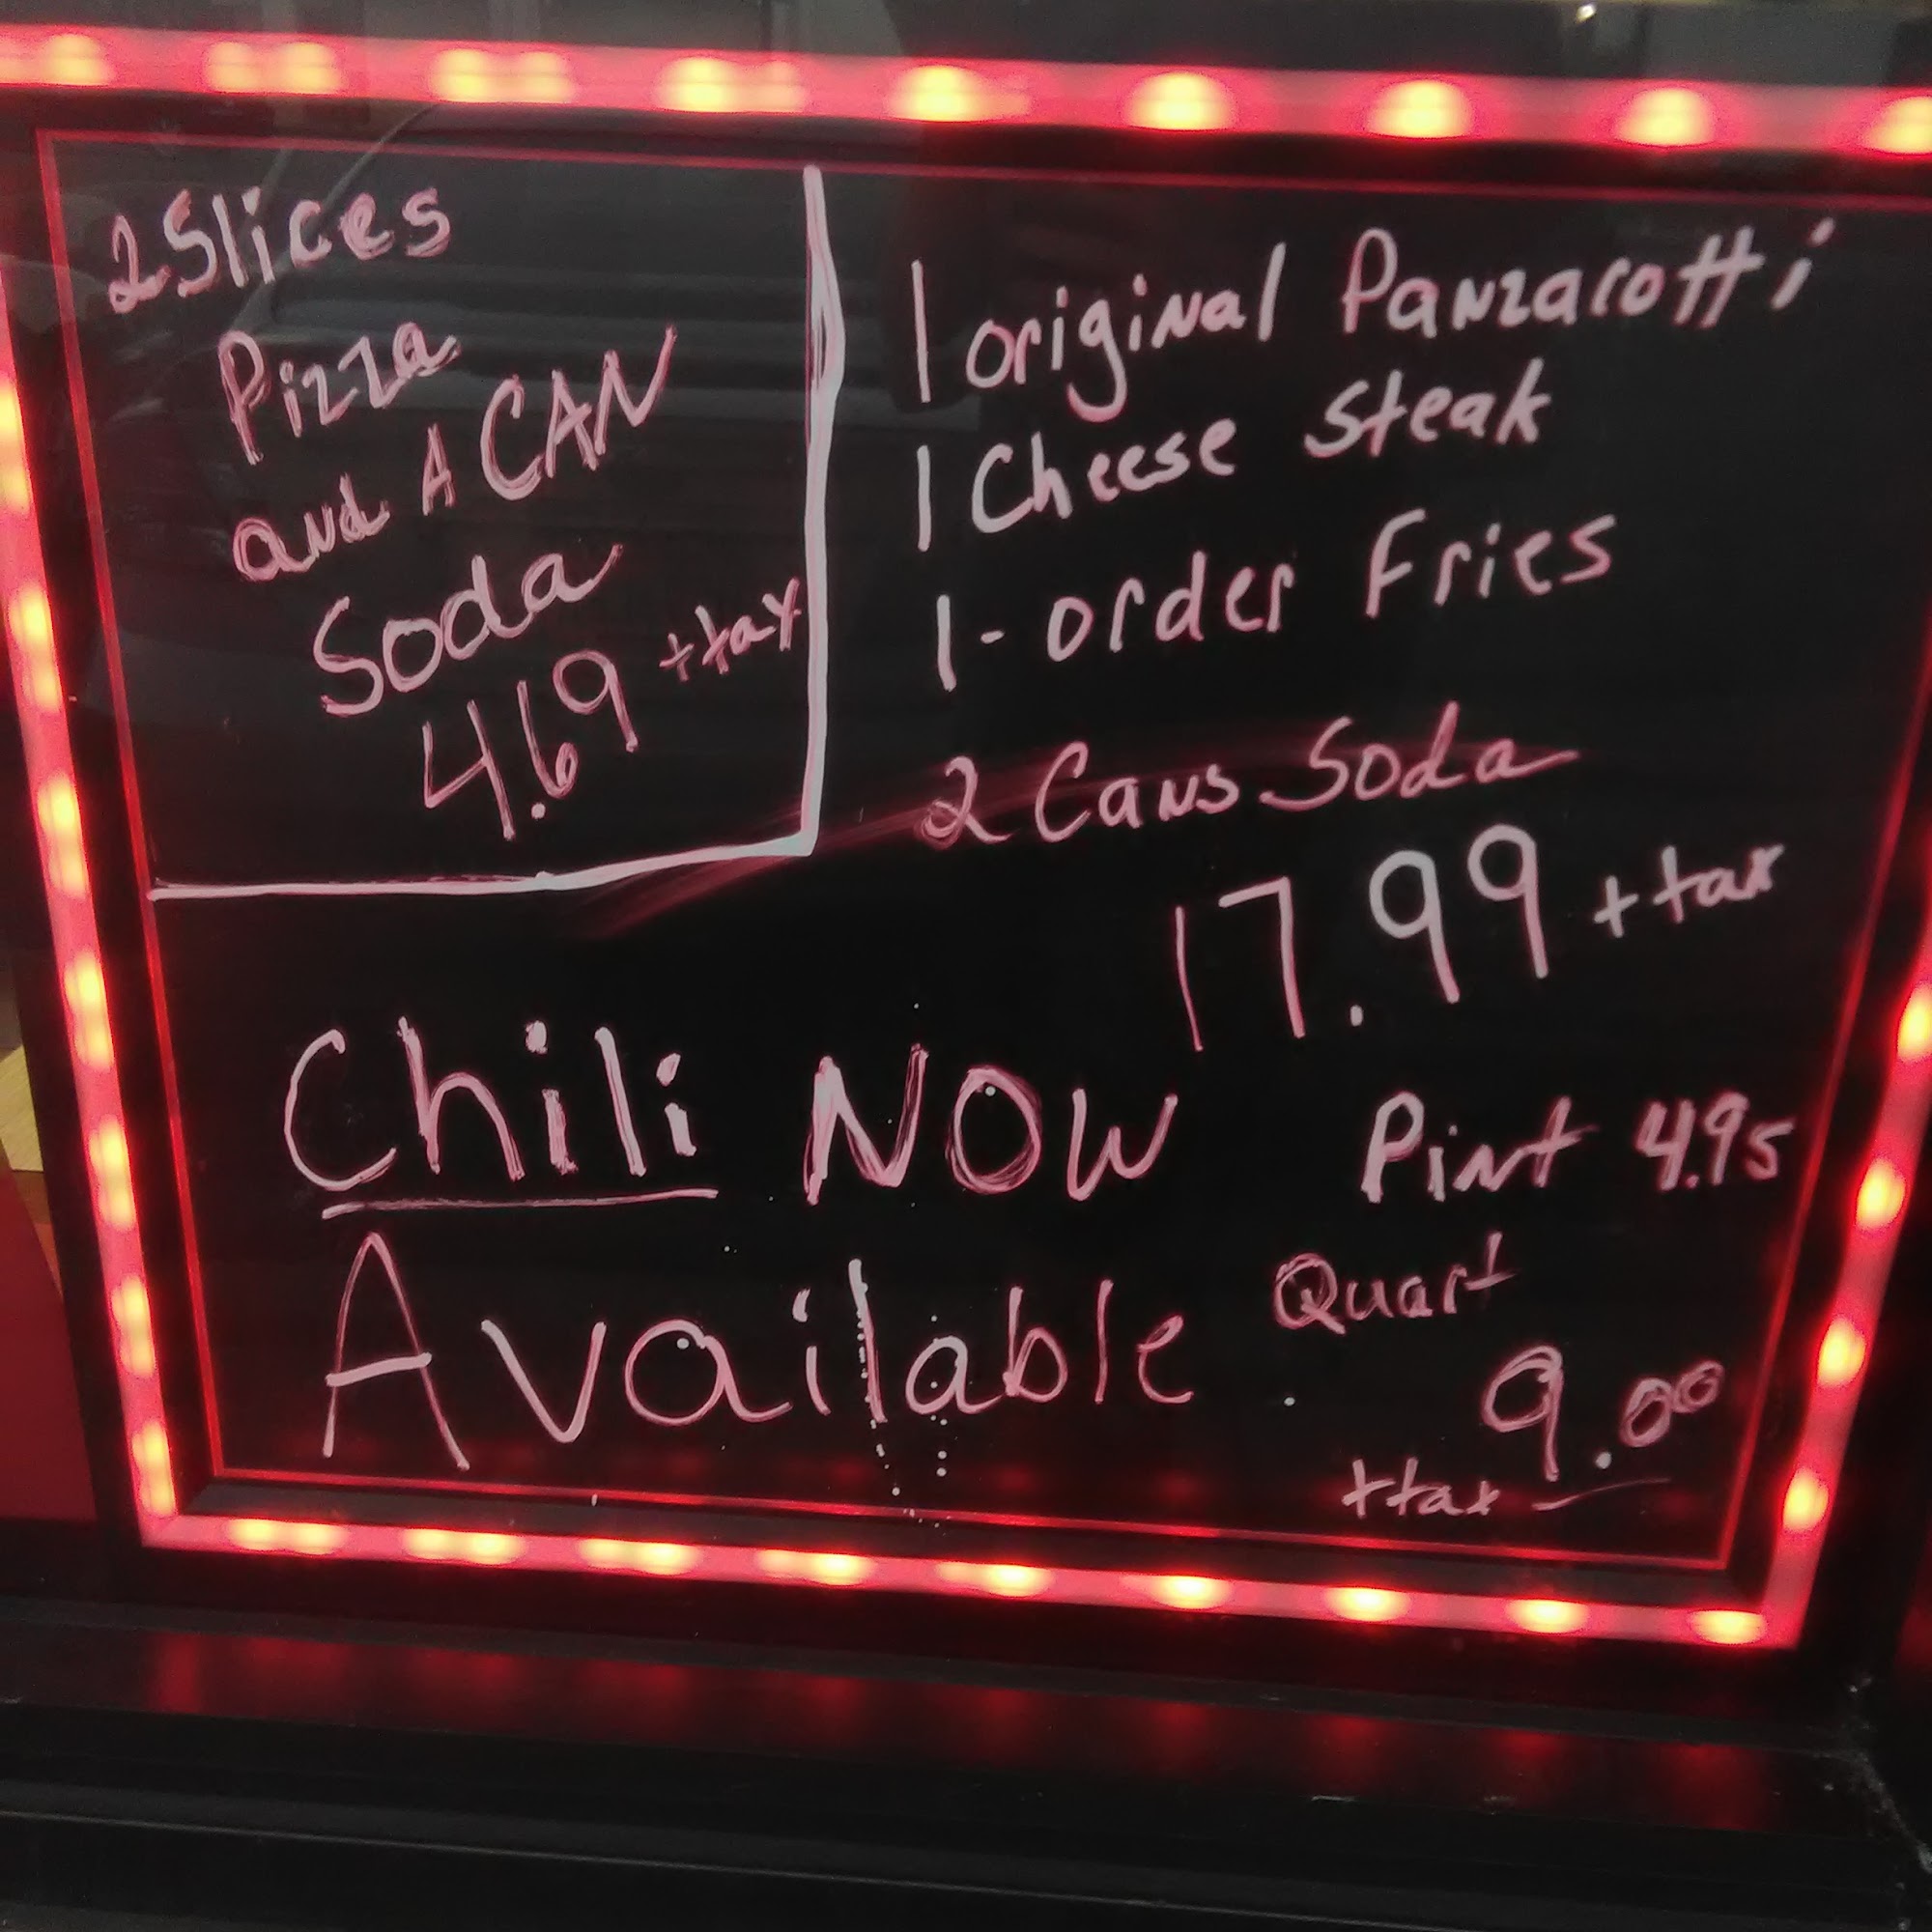 2 Slices
Pizza
and A CAN
Soda
4.69 + tax
1 original Panzarotti
1 Cheese Steak
1 - order Fries
2 Cans Soda
17.99 + tax
Chili NOW
Available
Pint 4.95
Quart
9.00
+ tax